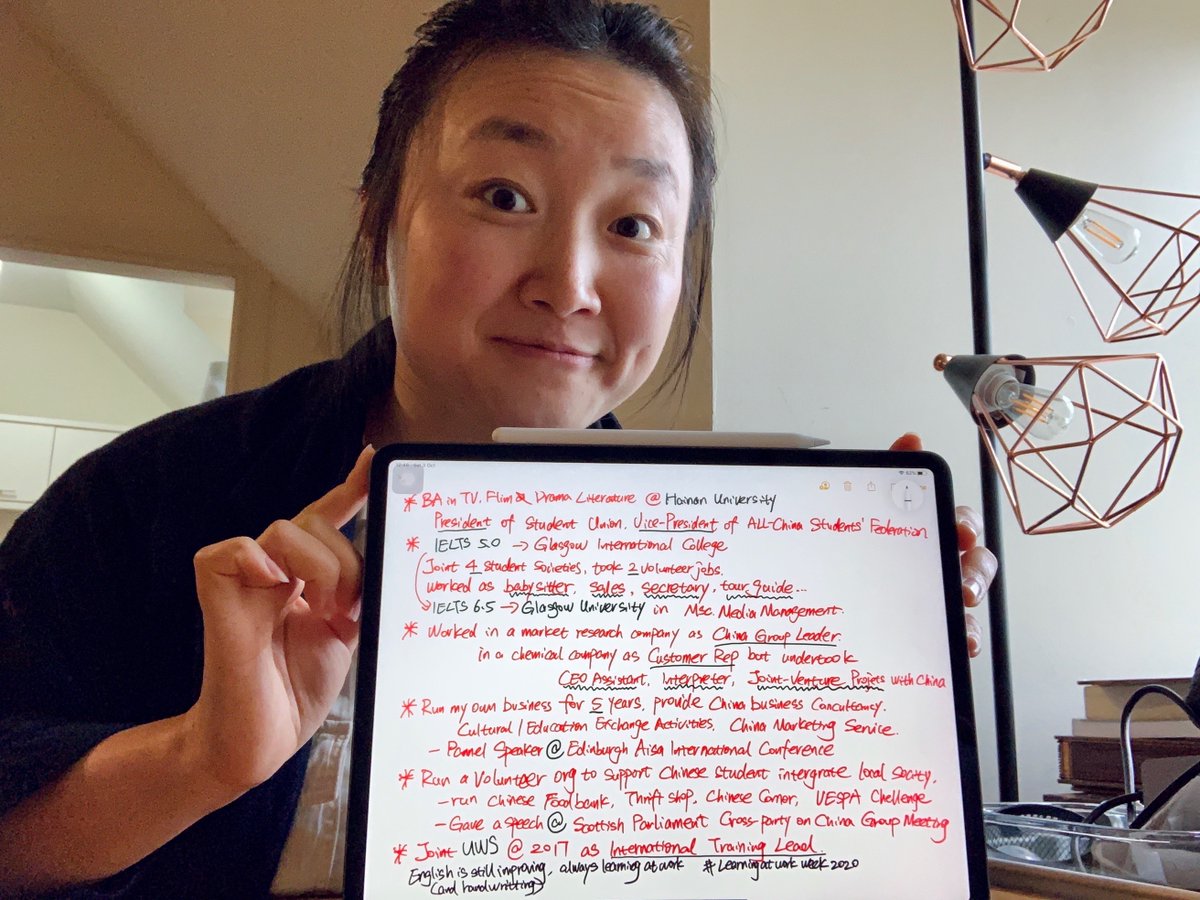 12:46 Sat 3 Oct
82%
* BA in TV. Flim & Drama Literature @ Hainan University
President of Student Union. Vice-President of ALL-China Students' Federation
* IELTS 5.0 → Glasgow International College
Joint 4 student societies, took 2 volunteer jobs.
worked as babysitter, sales, secretary, tour guide...
IELTS 6.5 → Glasgow University in Msc. Media Management.
* Worked in a market research company as China Group Leader.
in a chemical company as Customer Rep bot undertook
CEO Assistant, Interpreter, Joint-Venture Projets with China
* Run my own business for 5 years, provide China business Concultancy.
Cultural/Education Exchange Activities, China Marketing Service.
- Pannel Speaker @ Edinburgh Aisa International Conference
* Run a volunteer org to support Chinese student intergrate local socity,
- run Chinese Foodbank, Thrift shop, Chinese Corner, VESPA Chellenge
- Gave a speech @ Scottish Parliament Cross-party on China Group Meeting
* Joint UWS @ 2017 as International Training Lead.
English is still improving, always learning at work #Learning at work week 2020
(and handwritting)